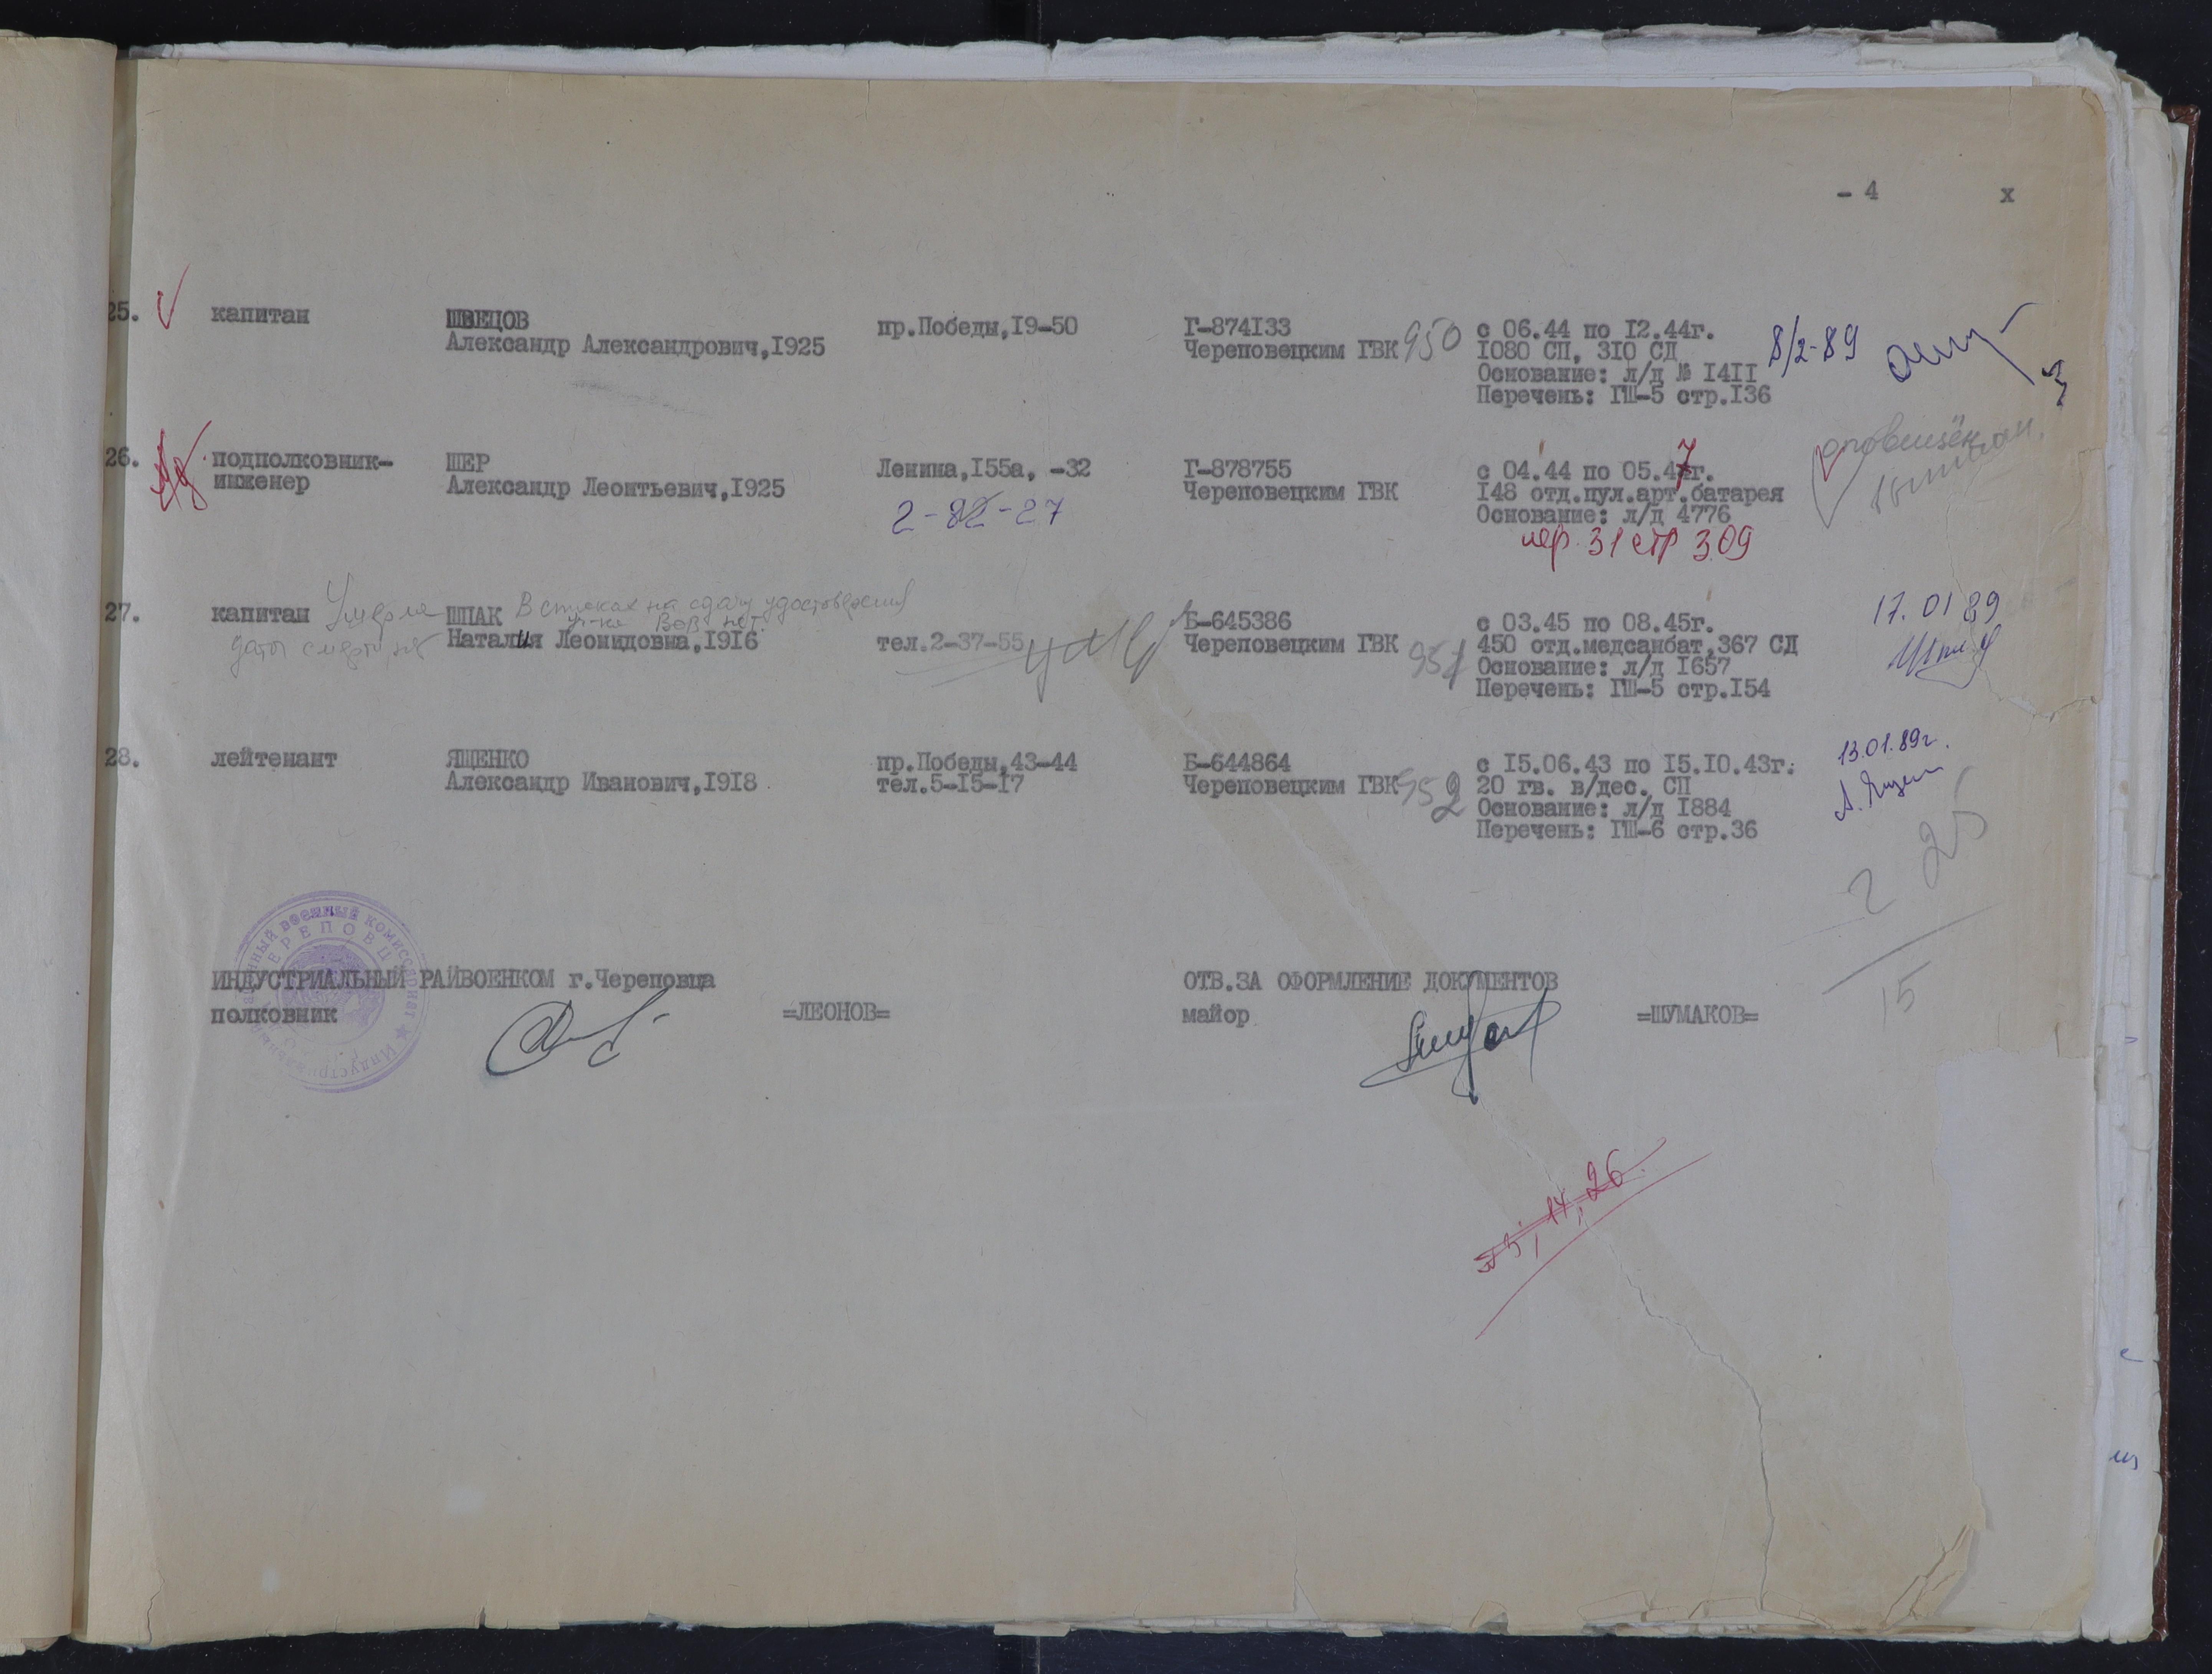 - 4 х
25. капитан ШВЕЦОВ
Александр Александрович,1925
пр.Победы,19-50
Г-874133
Череповецким ГВК 950
с 06.44 по 12.44г.
1080 СП, 310 СД
Основание: л/д № 1411
Перечень: ГШ-5 стр.136
8/2-89
26. подполковник-
инженер
ШЕР
Александр Леонтьевич,1925
Ленина,155а, -32
2-82-27
Г-878755
Череповецким ГВК
с 04.44 по 05.47г.
148 отд.пул.арт.батарея
Основание: л/д 4776
пер. 31 стр 309
оповещён
27. капитан
Умерла
даты смерти нет
ШПАК
Наталия Леонидовна,1916
В списках на сдачу удостоверения
уч-ка ВОВ нет.
тел.2-37-55
умер
Б-645386
Череповецким ГВК 951
с 03.45 по 08.45г.
450 отд.медсанбат,367 СД
Основание: л/д 1657
Перечень: ГШ-5 стр.154
17.01 89
28. лейтенант
ЯЩЕНКО
Александр Иванович,1918
пр.Победы,43-44
тел.5-15-17
Б-644864
Череповецким ГВК 952
с 15.06.43 по 15.10.43г.
20 гв. в/дес. СП
Основание: л/д 1884
Перечень: ГШ-6 стр.36
13.01.89г.
2 25
15
ИНДУСТРИАЛЬНЫЙ РАЙВОЕНКОМ г.Череповца
полковник =ЛЕОНОВ=
ОТВ.ЗА ОФОРМЛЕНИЕ ДОКУМЕНТОВ
майор =ШУМАКОВ=
военный комиссариат ★ Индустриальный
ЧЕРЕПОВЦ
14, 26.